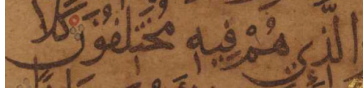 الَّذِي هُمْ فِيهِ مُخْتَلِفُونَ كَلَّا